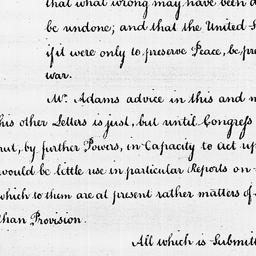 that what wrong may have been d
be undone; and that the United S
if it were only to preserve Peace, be pre
war.
Mr. Adams advice in this and m
his other Letters is just, but until Congress
put, by further Powers, in Capacity to act up
would be little use in particular Reports on
which to them are at present rather matters of
than Provision.
All which is Submitt